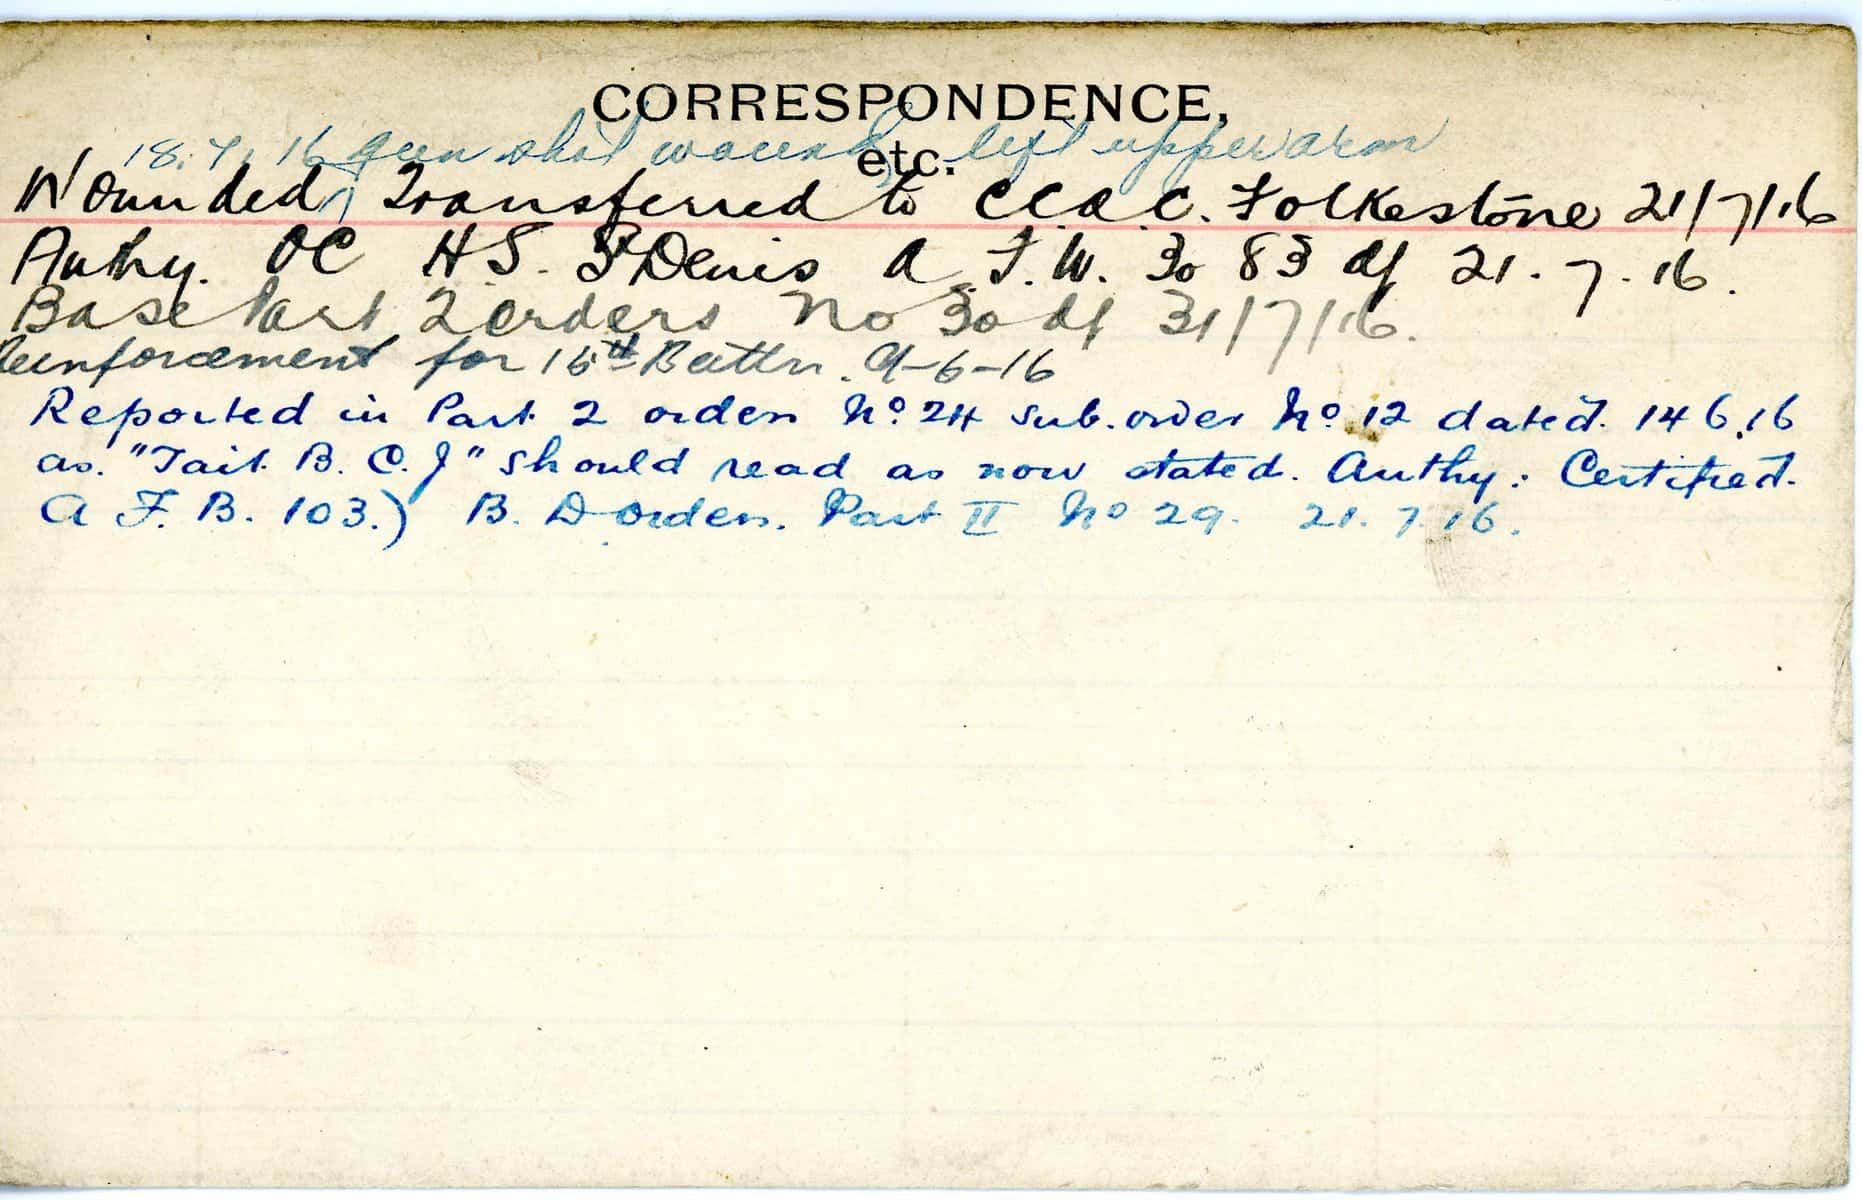 CORRESPONDENCE,
18.7.16 gun shot wound left upper arm
etc.
Wounded, Transferred to C.C.A.C. Folkestone 21/7/16
Authy. OC H.S. St Denis A.F.W. 3083 df 21.7.16.
Base Part 2 orders No 30 df 31/7/16.
Reinforcement for 16th Battn. 9-6-16
Reported in Part 2 orders No. 24 sub. order No. 12 dated. 14 6.16
as. "Tait. B. C. J" should read as now stated. Authy: Certified.
A F. B. 103.) B. D orders. Part II No 29. 21.7.16.